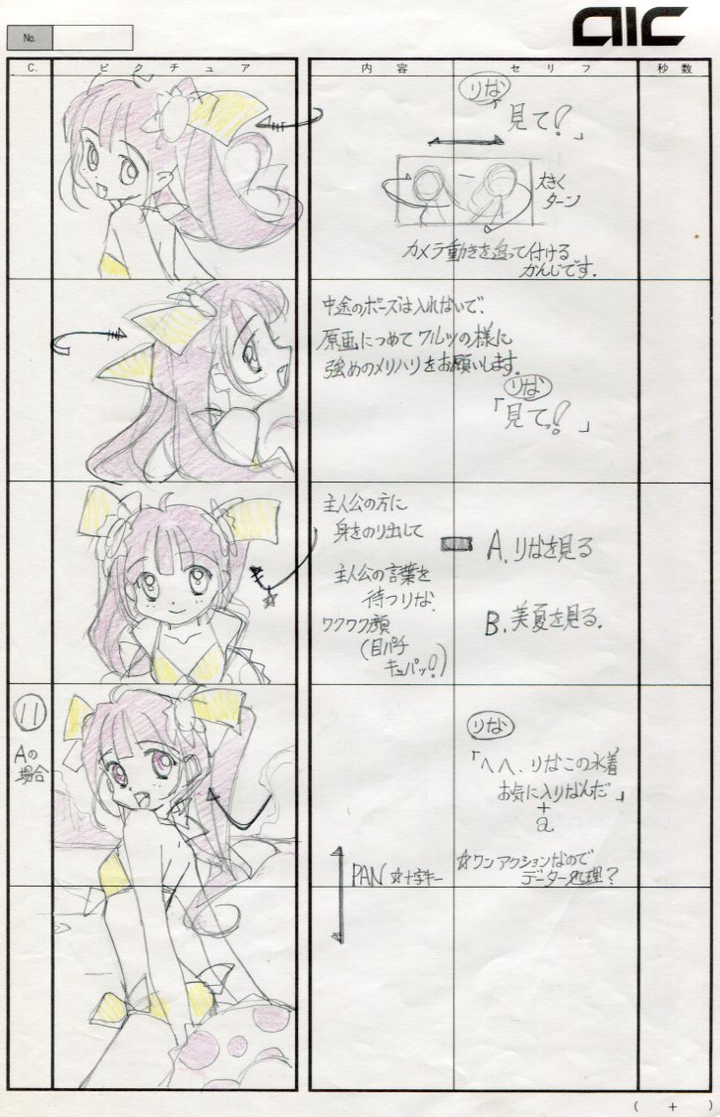 aic
No.
C.
ピクチュア
内容
セリフ
秒数
りな
「見て!」
大きく
ターン
カメラ動きを追って付ける
かんじです.
中途のポーズは入れないで、
原画につめてワルツの様に
強めのメリハリをお願いします。
りな
「見てっ!」
主人公の方に
身をのり出して
主人公の言葉を
待つりな
ワクワク顔
(目パチ
キュパッ!)
A. りなを見る
B. 美夏を見る.
11
Aの
場合
りな
「へへ、りなこの水着
お気に入りなんだ」
+
a
PAN ☆十字キー
☆ワンアクションなので
データー処理?
( + )